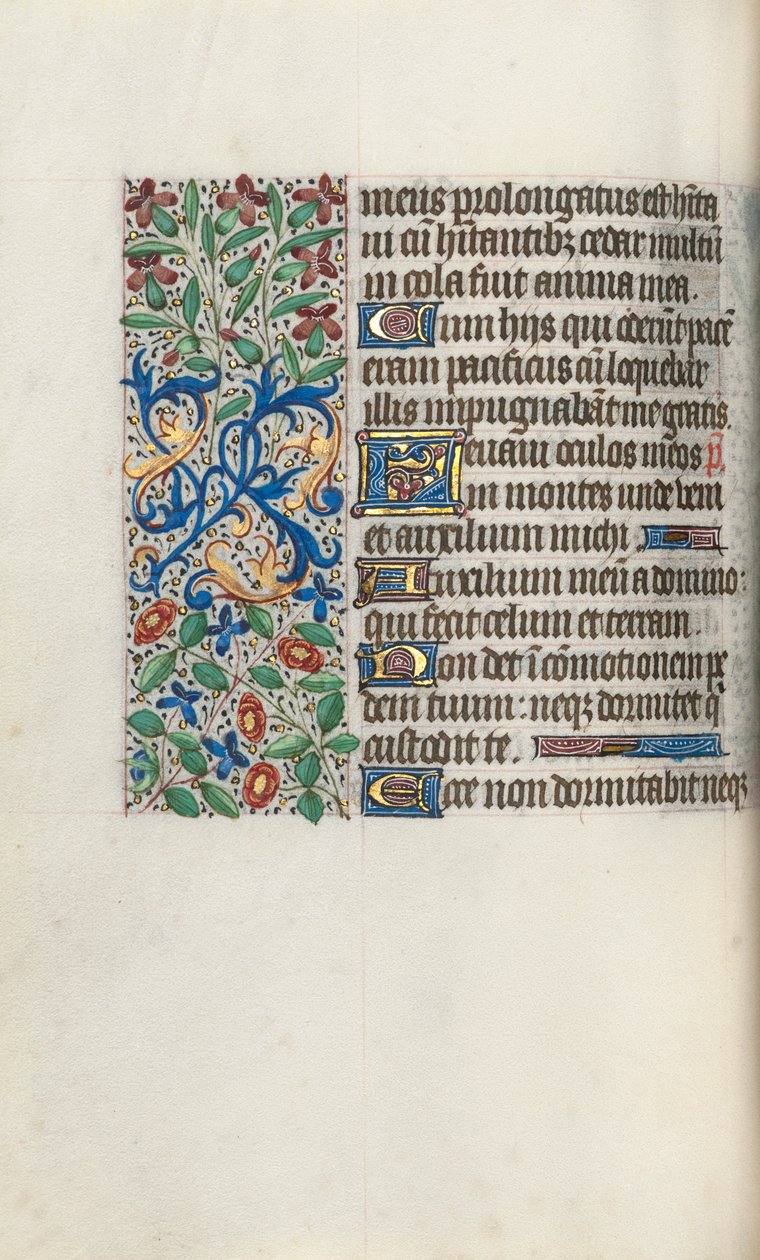 meus prolongatus est hīta
ui cū hītantibȝ cedar multū
in cola fuit anima mea.
Cum hijs qui oderūt pacē
eram pacificus cū loquebar
illis impugnabāt me gratis.
Leuaui oculos meos p̄.
in montes unde veni
et auxilium michi.
Auxilium meū a domino:
qui fecit celum et terram.
Non det ī cōmotionem pe
dem tuum: neqȝ dormitet q̄
custodit te.
Ecce non dormitabit neqȝ